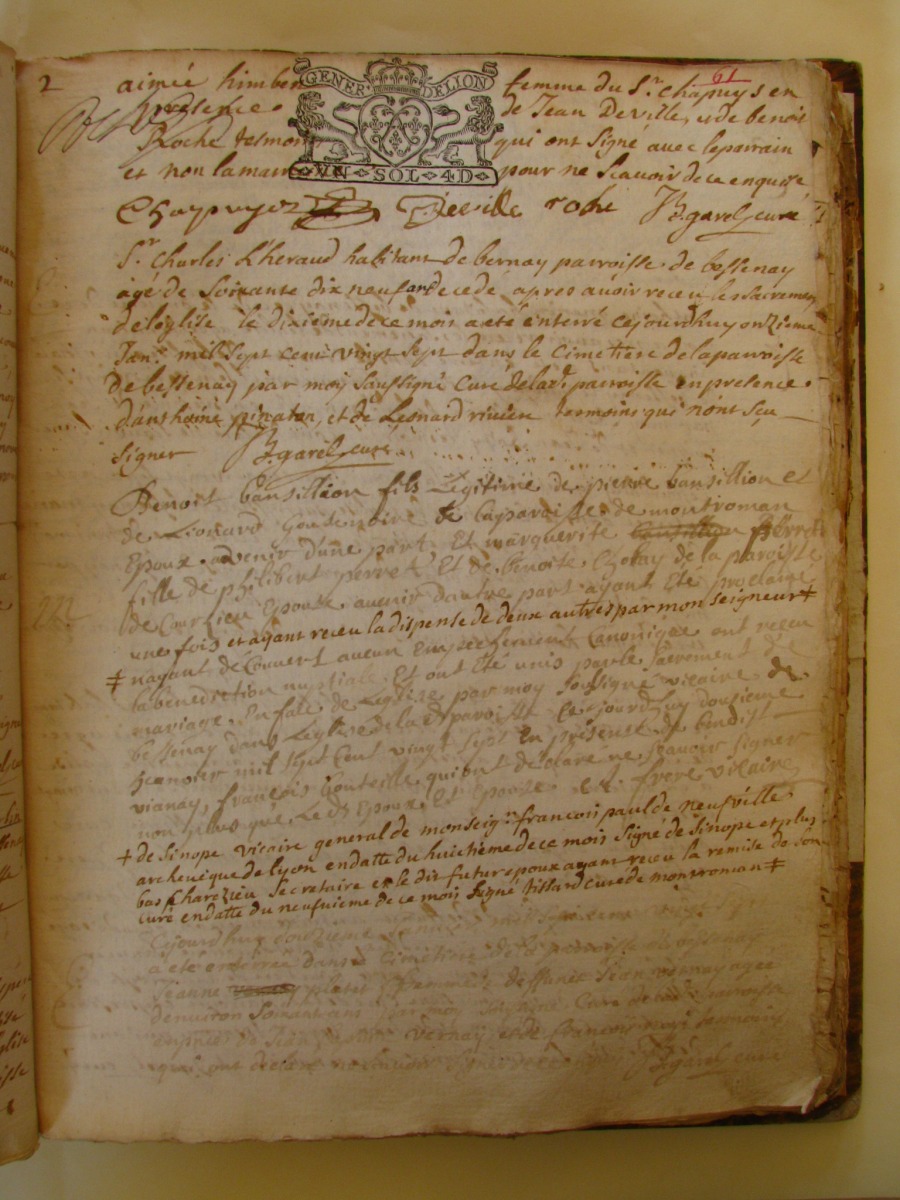 2 aimée himber GENER. DELION femme du Sr. Chapuys en 61
presence de Jean Deville, et de benoit
Roche temoin qui ont Signé avec le parrain
et non la mar VN SOL 4D pour ne Scavoir de ce enquise
Chapuyez Deville roche B. garel curé
Sr. Charles L'heraud habitant de bernay parroisse de bessenay
agé de Soixante dix neuf an decedé apres avoir receu les sacremen
de leglise le dixieme de ce mois a eté enterré cejourdhuy onzieme
Janr. mil Sept cent vingt Sept dans le Cimetiere de la parroisse
de bessenay par moy Soussigné Curé de lad. parroisse en presence
d'anthoine pinaton, et de Leonard riviere temoins qui n'ont Sçu
Signer B. garel curé
Benoit bansillion fils Legitime de pierre bansillion et
de Lionard de la paroisse de montroman
Epoux advenir d'une part Et marguerite perret
fille de philibert perret Et de benoite de la paroisse
de Courzieu Epouse avenir d'autre part ayant Eté proclamé
une fois et ayant receu la dispense de deux autres par monseigneur ‡
‡ nayant de Couvert aucun Empeschement Canonique ont receu
la benediction nuptiale Et ont Eté unis par le Sacrement de
mariage En fase de Leglize par moy Soussigné vicaire de
bessenay dans Leglise de lad. paroisse Ce jourdhuy dousieme
Jeanvier mil sept Cent vingt Sept En presense de
vianay, francois qui ont declaré ne scavoir signer
non plus que Led. Epoux Et Epouse frere vicaire
‡ de Sinope vicaire general de monseigr. francois paul de neufville
archevique de lyon en datte du huictieme de ce mois Signé de Sinope et plus
bas Charezieu Secretaire et le dit futur epoux ayant receu la remise de Son
curé en datte du neufvieme de ce mois Signé tissard curé de montroman ‡
Cejourdhuy douzieme Janvier mil Sept cent vingt Sept
a eté enterrée dans le Cimetiere de la parroisse de bessenay
Jeanne platet femme de deffunct Jean vernay agée
denviron Soixante ans par moy Soussigné Curé de lad. parroisse
en presence de Jean vernay et de francois temoins
qui ont declaré ne scavoir Signer B. garel curé